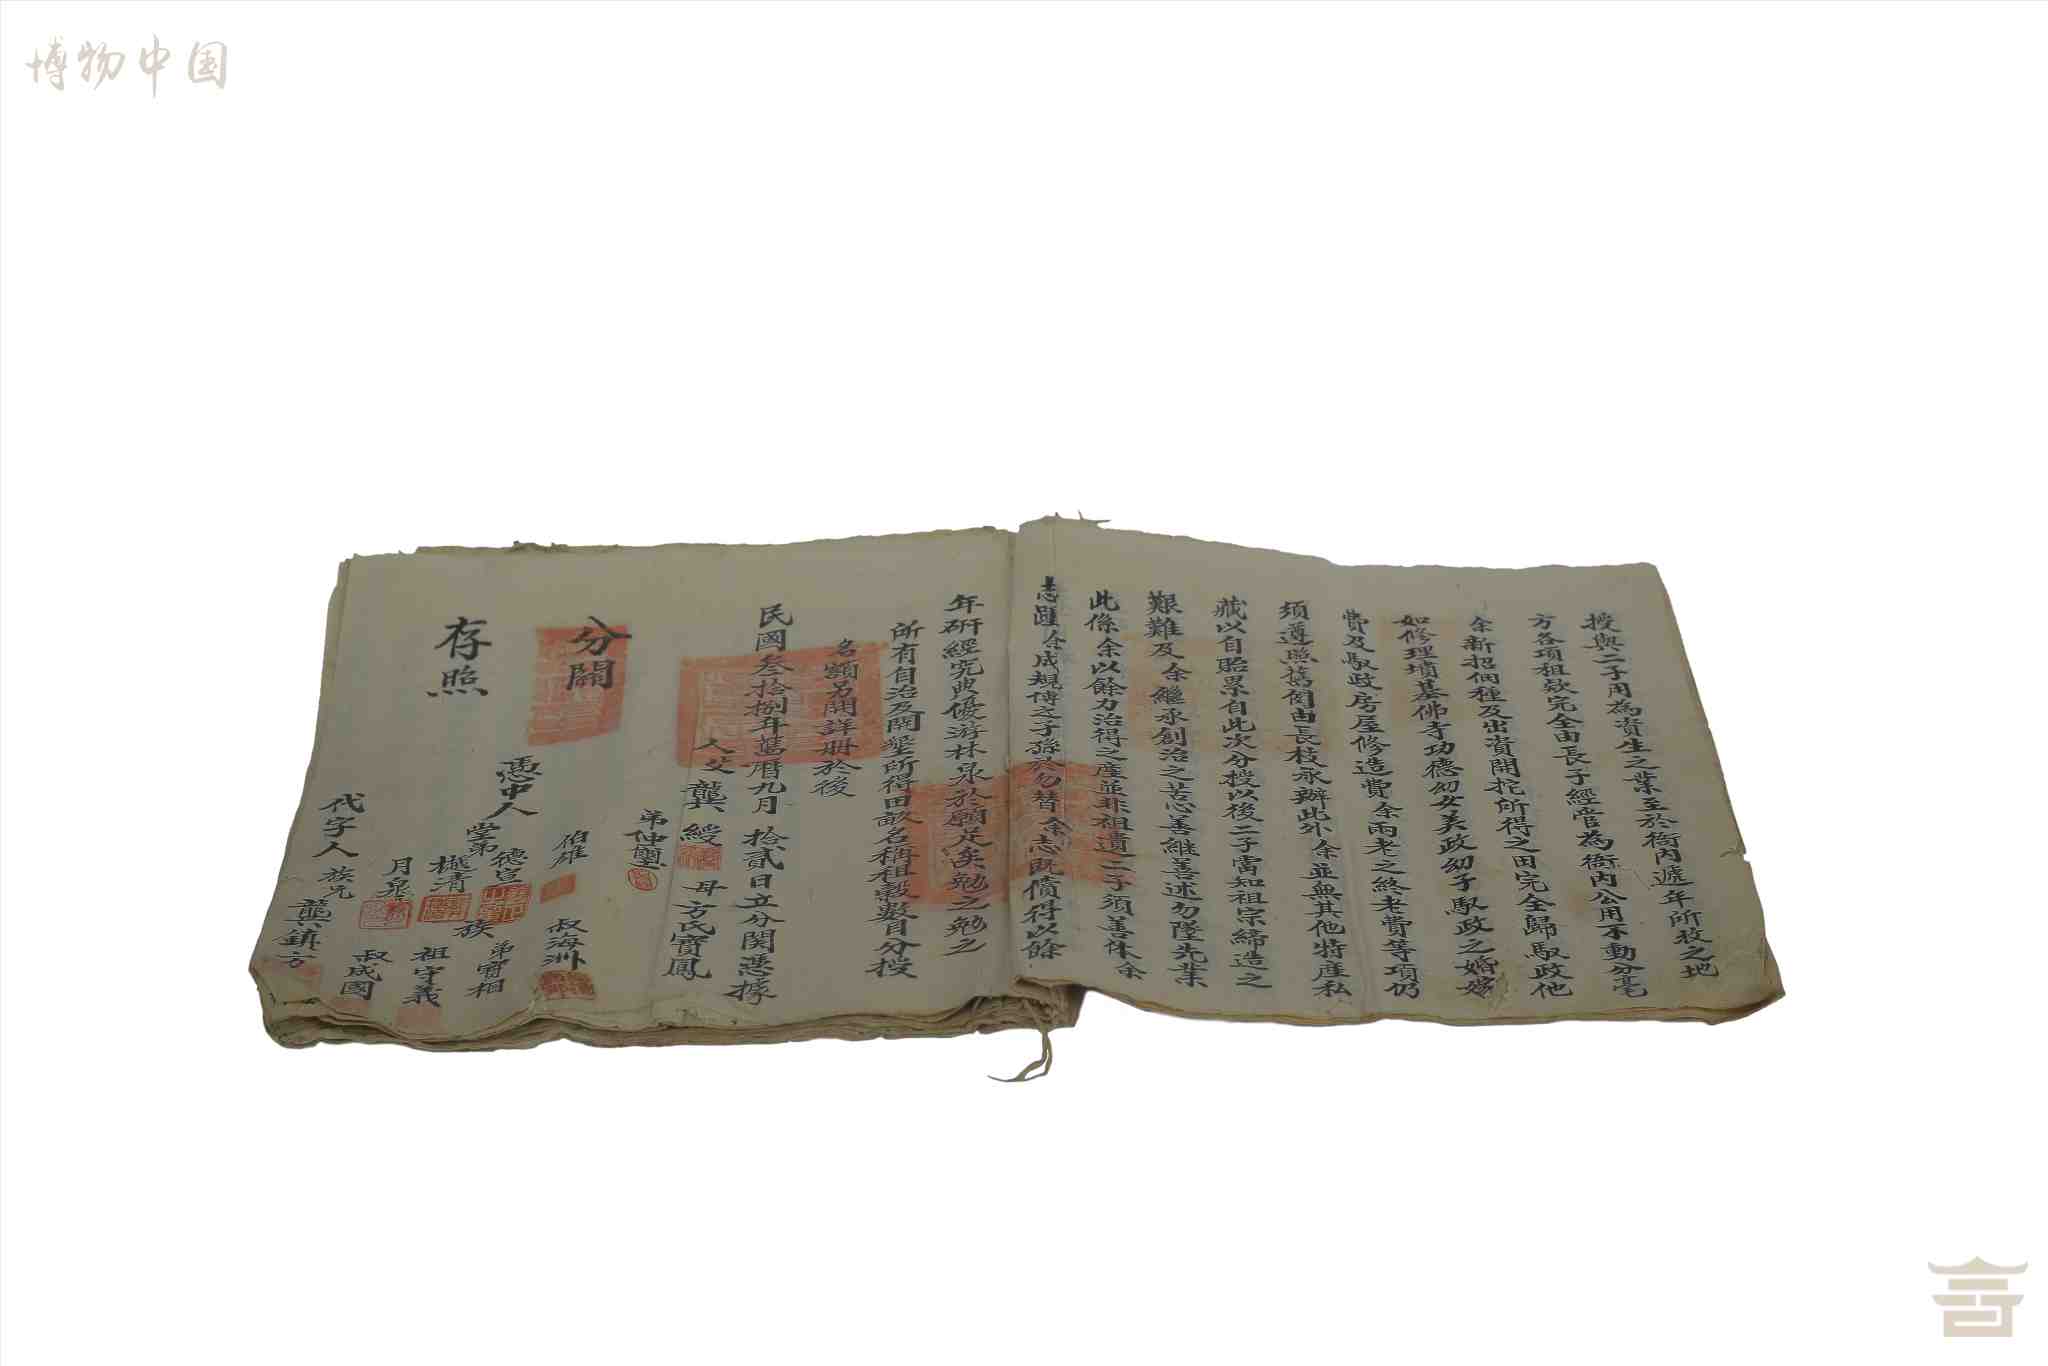 博物中国
授與二子用為資生之業至於衙內遞年所收之地
方各項租欵完全由長子經営為衙內公用不動分毫
余新招佃種及出資開挖所得之田完全歸馭政他
如修理墳墓佛寺功德幼女美政幼子馭政之婚嫁
費及馭政房屋修造費余両老之終老費等項仍
須遵照舊例由長枝承辦此外余並無其他特産私
藏以自貽累自此次分授以後二子當知祖宗締造之
艱難及余繼承創治之苦心善継善述勿墜先業
此係余以餘力治得之産並非祖遺二子須善体余
志余成規傳之子孫於勿替余志既償得以餘
年研經究典優游林泉於願足矣勉之勉之
所有自治及開墾所得田畝名稱租穀數目分授
名額另開詳冊於後
民國叁拾捌年舊曆九月拾貳日立分関憑據
人父龔綬 母方氏寳鳳
弟仲
分關
存照
憑中人
伯雄 叔海洲
堂弟德宣 族弟寳相
樾清 祖守義
月泉 叔成國
代字人族兄龔鎮方